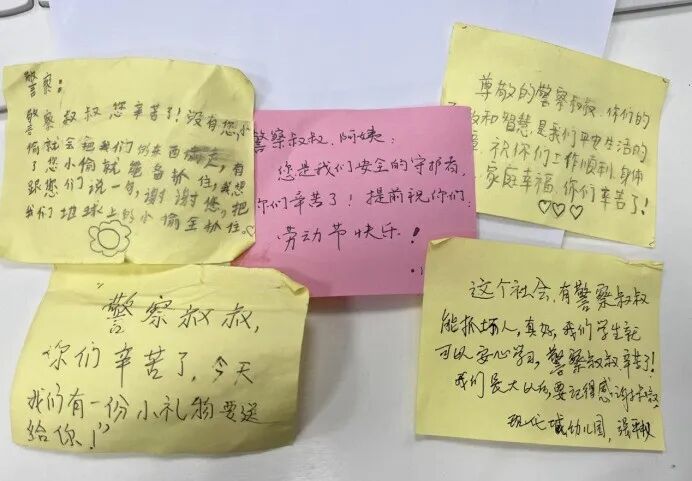 警察:
警察叔叔您辛苦了!没有您,小
偷就会每我们的东西偷走,
了您小偷就能备抓住,我想
跟您们说一句,谢谢您,把
我们地球上的小偷全抓住。
警察叔叔、阿姨:
您是我们安全的守护者,
你们辛苦了!提前祝你们
劳动节快乐!
尊敬的警察叔叔,你们的
和智慧,是我们平安生活的
祝你们工作顺利,身体
家庭幸福,你们辛苦了!
"警察叔叔,
你们辛苦了,今天
我们有一份小礼物要送
给你!"
这个社会,有警察叔叔
能抓坏人,真好,我们学生就
可以安心学习,警察叔叔辛苦了!
我们长大以后要记得感谢叔叔
现代城幼儿园,